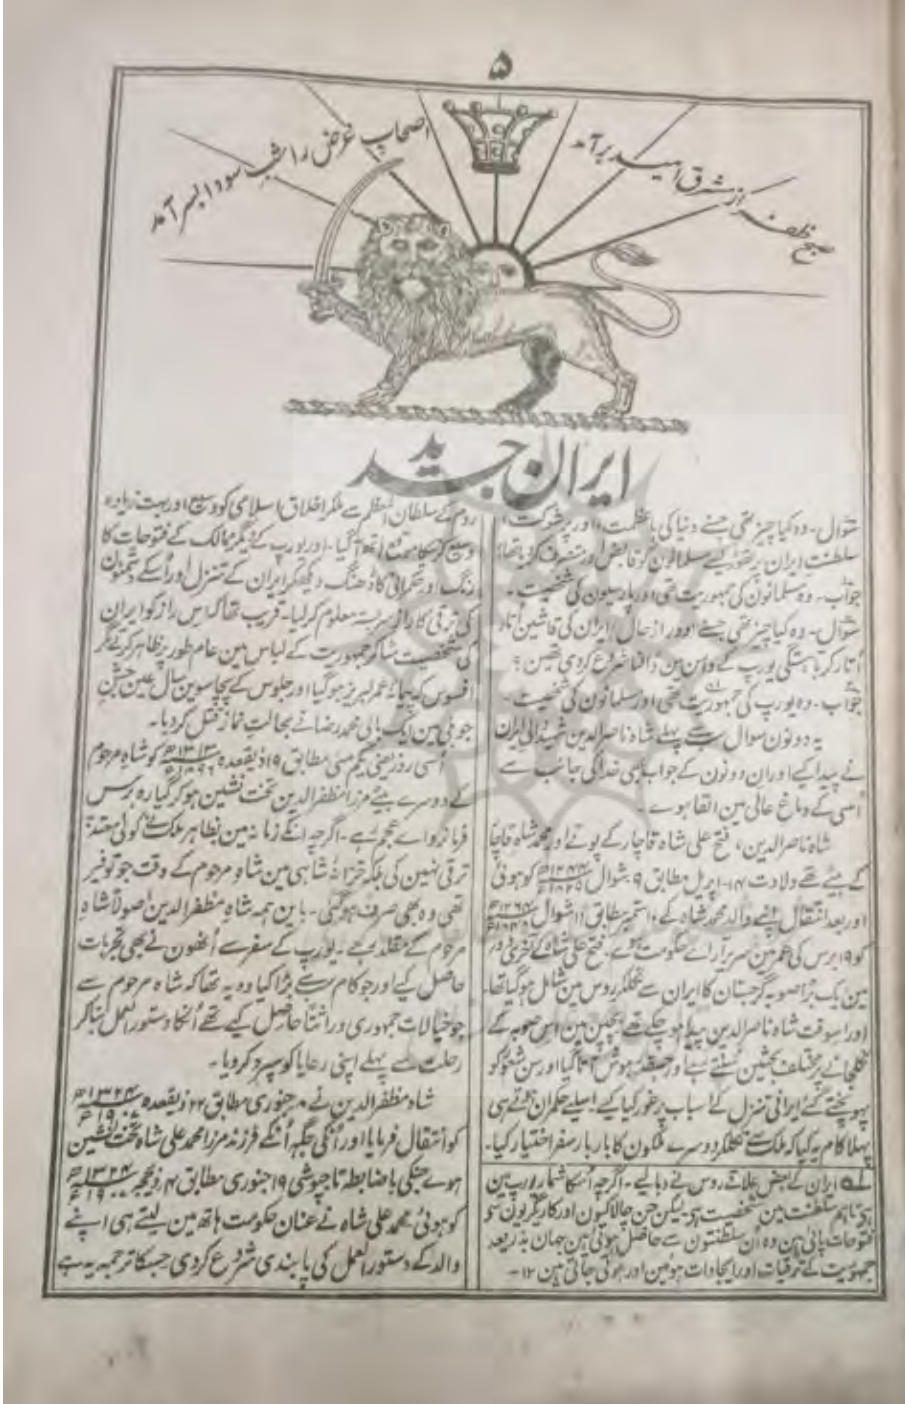 ۵
صبح ظفر از مشرق امید برآمد
اصحاب غرض را شب سودا بسر آمد
ایران جدید
سوال - وہ کیا چیز تھی جسنے دنیا کی باعظمت اور پرشوکت
سلطنت ایران پر تھوڑے سے مسلمانون کو قابض اور متصرف کر دیا تھا؟
جواب - وہ مسلمانون کی جمہوریت تھی اور پارسیون کی شخصیت -
سوال - وہ کیا چیز تھی جسنے دور از حال ایران کی قاشین اُتار
اُتار کر باہستگی یورپ کے دامن مین ڈالنا شروع کردی تھین؟
جواب - وہ یورپ کی جمہوریت تھی اور مسلمانون کی شخصیت -
یہ دونون سوال سب سے پہلے شاہ ناصرالدین شہید والی ایران
نے پیدا کیے اور ان دونون کے جواب بھی خدا کی جانب سے
اُسی کے دماغ عالی مین القا ہوے -
شاہ ناصرالدین، فتح علی شاہ قاچار کے پوتے اور محمد شاہ قاچار
کے بیٹے تھے ولادت ۱۴- اپریل مطابق ۹ شوال کو ہوئی
اور بعد انتقال اپنے والد محمد شاہ کے ستمبر مطابق شوال
کو ۱۹ برس کی عمر مین سریر آراے حکومت ہوے - فتح علی شاہ کے آخری دور
مین ایک بڑا صوبہ گرجستان کا ایران سے نکلکر روس مین شامل ہوگیا تھا
اور اسوقت شاہ ناصرالدین پیدا ہوچکے تھے بچپن مین اس صوبہ کے
نکلجانے پر مختلف بحثین سنتے رہے اور جسقدر ہوش آتا گیا اور سن شعور کو
پہونچتے گئے ایرانی تنزل کے اسباب پر غور کیا کیے - اسلیے حکمران ہوتے ہی
پہلا کام یہ کیا کہ ملک سے نکلکر دوسرے ملکون کا بار بار سفر اختیار کیا -
لہ ایران کے بعض علاقے روس نے دبا لیے - اگرچہ اُسکا شمار یورپ مین
ہی تاہم سلطنت مین شخصیت ہی لیکن جن چالاکیون اور کاریگریون سے
فتوحات پائی ہین وہ اُن سلطنتون سے حاصل ہوئی ہین جہان بذریعہ
جمہوریت کے ترقیات اور ایجادات ہوئین اور ہوتی جاتی ہین ۱۲-
روم کے سلطان المعظم سے ملکر اخلاق اسلامی کو وسیع اور بہت زیادہ
وسیع کرنیکا موقع ہاتھ آگیا - اور یورپ کے دیگر ممالک کے فتوحات کا
رنگ اور حکمرانی کا ڈھنگ دیکھکر ایران کے تنزل اور اُسکے دشمنون
کی ترقی کا راز سربستہ معلوم کرلیا - قریب تھا کہ اس راز کو ایران
کی شخصیت مٹا کر جمہوریت کے لباس مین عام طور پر ظاہر کرتے مگر
افسوس کہ پیمانۂ عمر لبریز ہوگیا اور جلوس کے پچاسوین سال عین جشن
جوبلی مین ایک بابی محمد رضا نے بحالت نماز قتل کردیا -
اُسی روز یعنی یکم مئی مطابق ۱۹ ذیقعدہ ۱۳۱۳ھ ۱۸۹۶ع کو شاہ مرحوم
کے دوسرے بیٹے مرزا مظفرالدین تخت نشین ہوکر گیارہ برس
فرمانرواے عجم رہے - اگرچہ انکے زمانہ مین بظاہر ملک نے کوئی معتدبہ
ترقی نہین کی بلکہ خزانۂ شاہی مین شاہ مرحوم کے وقت جو توفیر
تھی وہ بھی صرف ہوگئی - باین ہمہ شاہ مظفرالدین اصولاً شاہ
مرحوم کے مقلد رہے - یورپ کے سفر سے اُنھون نے بھی تجربات
حاصل کیے اور جو کام سب سے بڑا کیا وہ یہ تھا کہ شاہ مرحوم سے
جو خیالات جمہوری وراثتاً حاصل کیے تھے اُنکا دستور العمل بناکر
رحلت سے پہلے اپنی رعایا کو سپرد کردیا -
شاہ مظفرالدین نے ۸ جنوری مطابق ۲۲ ذیقعدہ ۱۳۲۴ھ ۱۹۰۷ع
کو انتقال فرمایا اور اُنکی جگہ اُنکے فرزند مرزا محمد علی شاہ تخت نشین
ہوے جنکی باضابطہ تاجپوشی ۱۹ جنوری مطابق ۴ ذیحجہ ۱۳۲۴ھ ۱۹۰۷ع
کو ہوئی محمد علی شاہ نے عنان حکومت ہاتھ مین لیتے ہی اپنے
والد کے دستور العمل کی پابندی شروع کردی جسکا ترجمہ یہ ہے